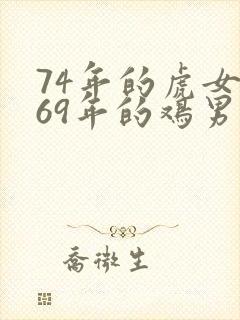 74年的虎女
69年的鸡男
乔微生